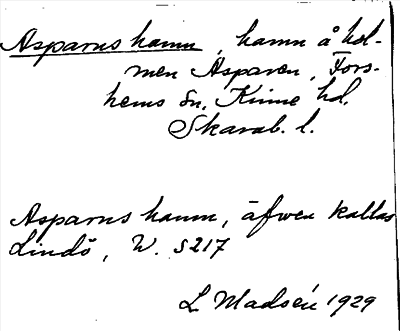 Asparns hamn, hamn å hol-
men Asparen, Fors-
hems sn, Kinne hd,
Skarab. l.
Asparns hamn, äfwen kallas
Lindö, W. S217
L Madsén 1929